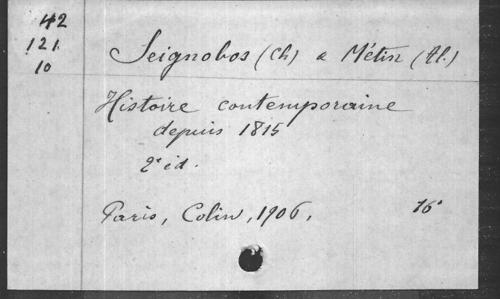 42
121
10
Seignobos (Ch) & Métin (Al.)
Histoire contemporaine
depuis 1815
2e éd.
Paris, Colin, 1906, 16°